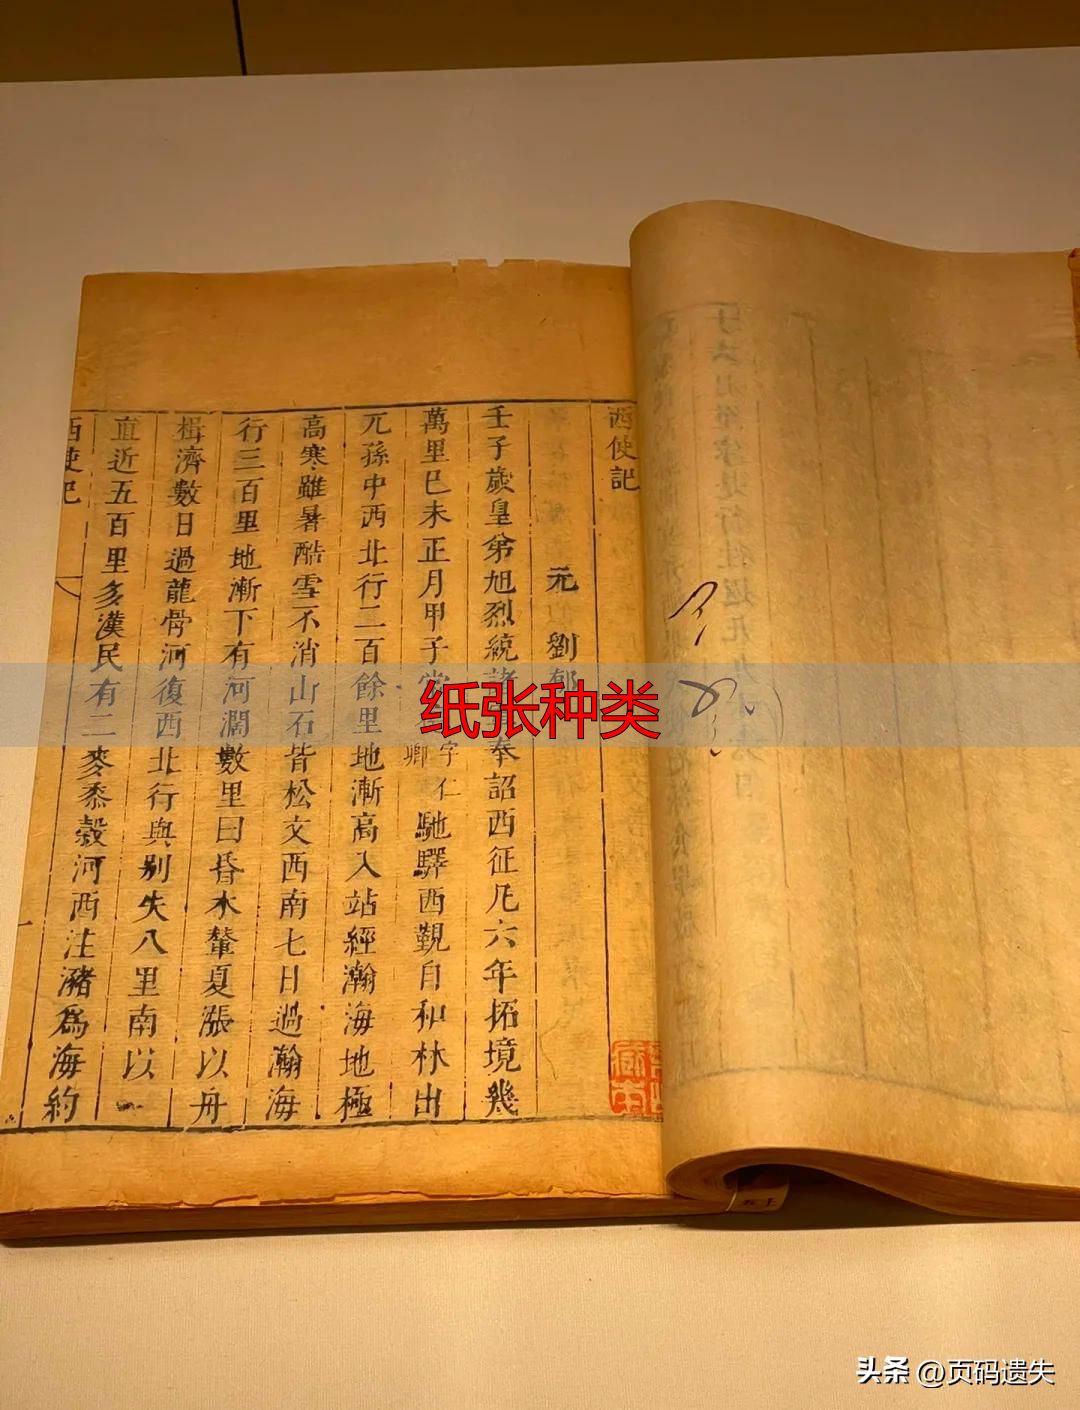 西使記
元 劉郁
壬子歲皇弟旭烈統諸奉詔西征凡六年拓境幾
萬里巳未正月甲子常字仁卿馳驛西覲自和林出
兀孫中西北行二百餘里地漸高入站經瀚海地極
高寒雖暑酷雪不消山石皆松文西南七日過瀚海
行三百里地漸下有河濶數里曰昏木輦夏漲以舟
楫濟數日過龍骨河復西北行與别失八里南以
直近五百里多漢民有二麥黍榖河西注瀦爲海約
西使記
纸张种类
头条 @页码遗失